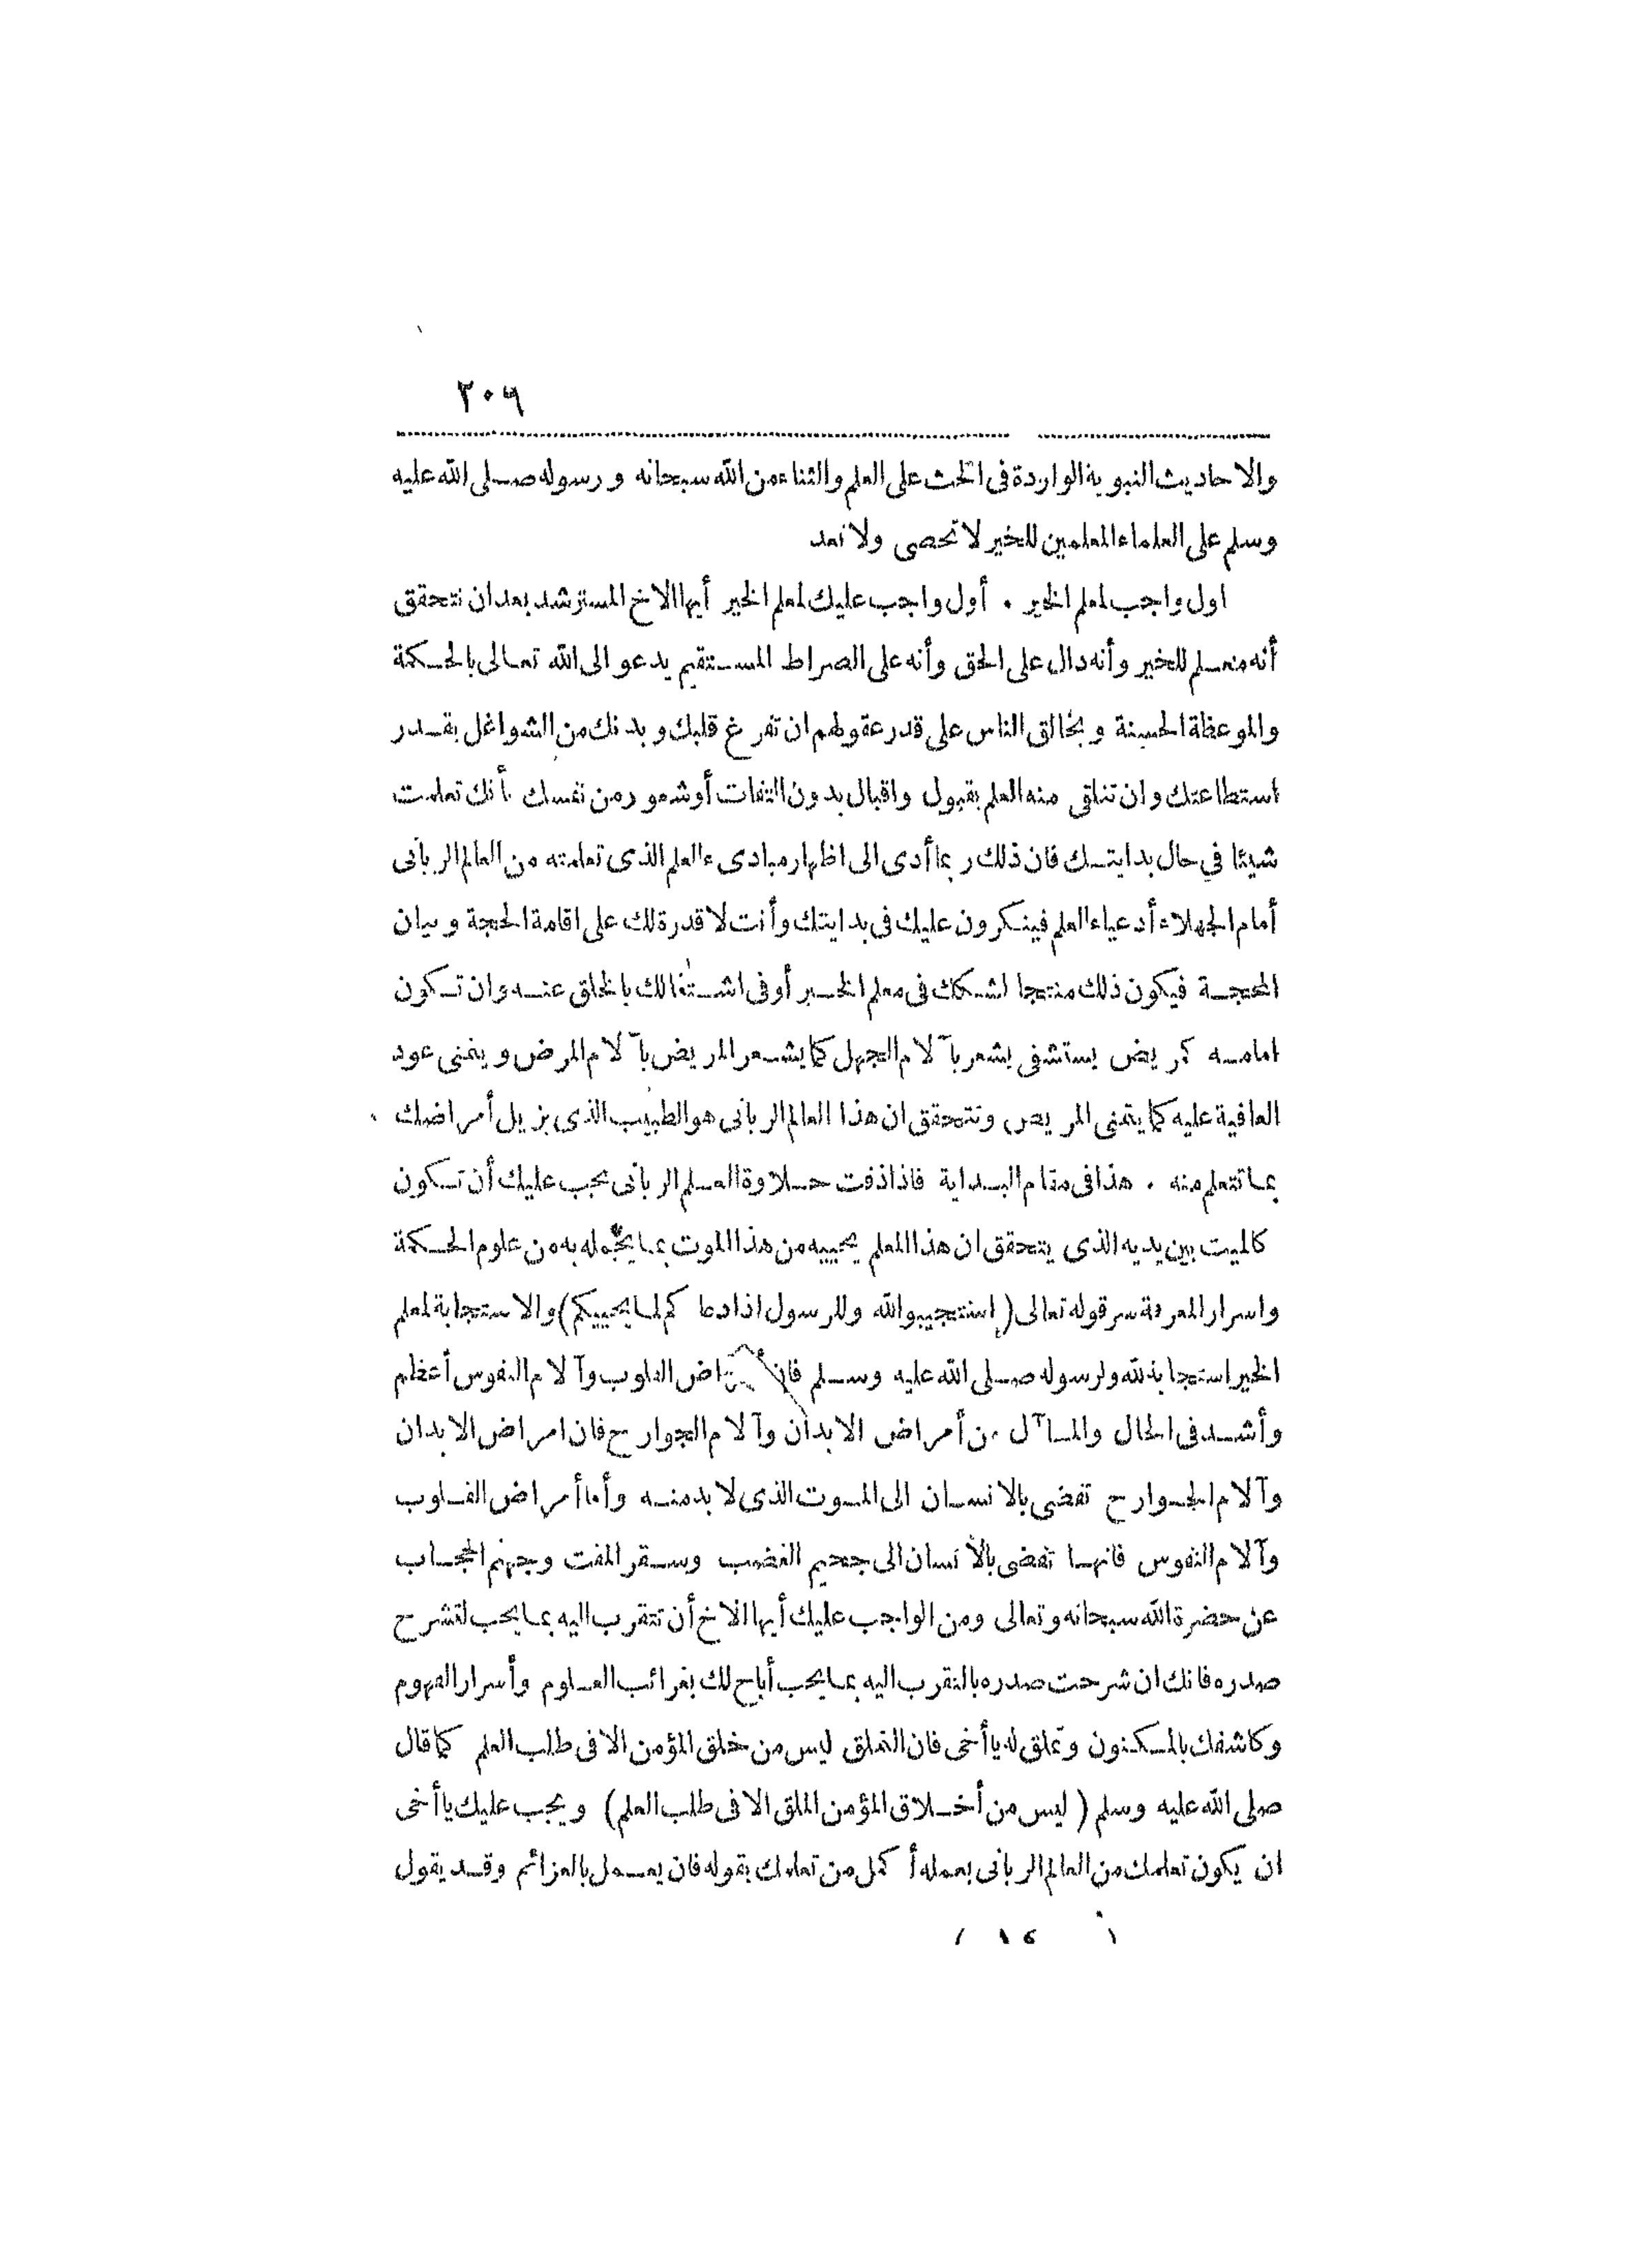 ٢٠٩
والاحاديث النبوية الواردة فى الحث على العلم والثناء من الله سبحانه ورسوله صلى الله عليه
وسلم على العلماء المعلمين للخير لا تحصى ولا تعد
اول واجب لمعلم الخير . أول واجب عليك لمعلم الخير أيها الاخ المسترشد بعد ان تتحقق
أنه معلم للخير وأنه دال على الحق وأنه على الصراط المستقيم يدعو الى الله تعالى بالحكمة
والموعظة الحسنة ويخالق الناس على قدر عقولهم ان تفرغ قلبك وبدنك من الشواغل بقدر
استطاعتك وان تتلقى منه العلم بقبول واقبال بدون التفات أو شعور من نفسك بأنك تعلمت
شيئا في حال بدايتك فان ذلك ربما أدى الى اظهار مبادىء العلم الذى تعلمته من العالم الربانى
أمام الجهلاء أدعياء العلم فينكرون عليك فى بدايتك وأنت لا قدرة لك على اقامة الحجة وبيان
المحجة فيكون ذلك منتجا لشكك فى معلم الخير أو فى اشتغالك بالخلق عنه وان تكون
امامه كمريض يستشفى يشعر بآلام الجهل كما يشعر المريض بآلام المرض ويتمنى عود
العافية عليه كما يتمنى المريض وتتحقق ان هذا العالم الربانى هو الطبيب الذى يزيل أمراضك
بما تتعلم منه . هذا فى مقام البداية فاذا ذقت حلاوة العلم الربانى يجب عليك أن تكون
كالميت بين يديه الذى يتحقق ان هذا المعلم يحييه من هذا الموت بما يجمله به من علوم الحكمة
واسرار المعرفة سر قوله تعالى (استجيبوا لله وللرسول اذا دعاكم لما يحييكم) والاستجابة لمعلم
الخير استجابة لله ولرسوله صلى الله عليه وسلم فان أمراض القلوب وآلام النفوس أعظم
وأشد فى الحال والمآل من أمراض الابدان وآلام الجوارح فان امراض الابدان
وآلام الجوارح تفضى بالانسان الى الموت الذى لا بد منه وأما أمراض القلوب
وآلام النفوس فانها تفضى بالأنسان الى جحيم الغضب وسقر المقت وجهنم الحجاب
عن حضرة الله سبحانه وتعالى ومن الواجب عليك أيها الاخ أن تتقرب اليه بما يحب لتشرح
صدره فانك ان شرحت صدره بالتقرب اليه بما يحب أباح لك بغرائب العلوم وأسرار الفهوم
وكاشفك بالمكنون وتملق له يا أخى فان التملق ليس من خلق المؤمن الا فى طلب العلم كما قال
صلى الله عليه وسلم (ليس من أخلاق المؤمن الملق الا فى طلب العلم) ويجب عليك يا أخى
ان يكون تعلمك من العالم الربانى بعمله أكمل من تعلمك بقوله فان يعمل بالعزائم وقد يقول